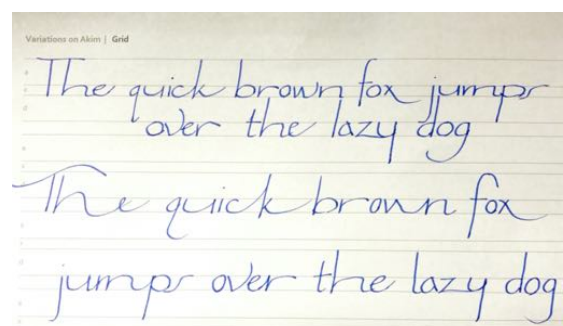 Variations on Akim | Grid
The quick brown fox jumps
over the lazy dog
The quick brown fox
jumps over the lazy dog